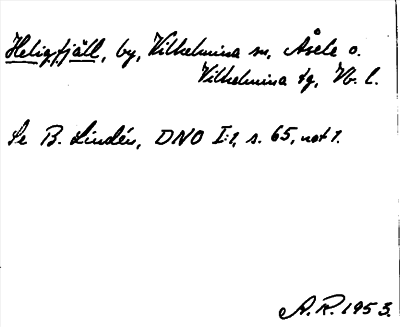 Heligfjäll, by, Vilhelmina sn, Åsele o.
Vilhelmina tg, Vb. l.
Se B. Lindén, DNO I:1, s. 65, not 1.
A.R. 1953.